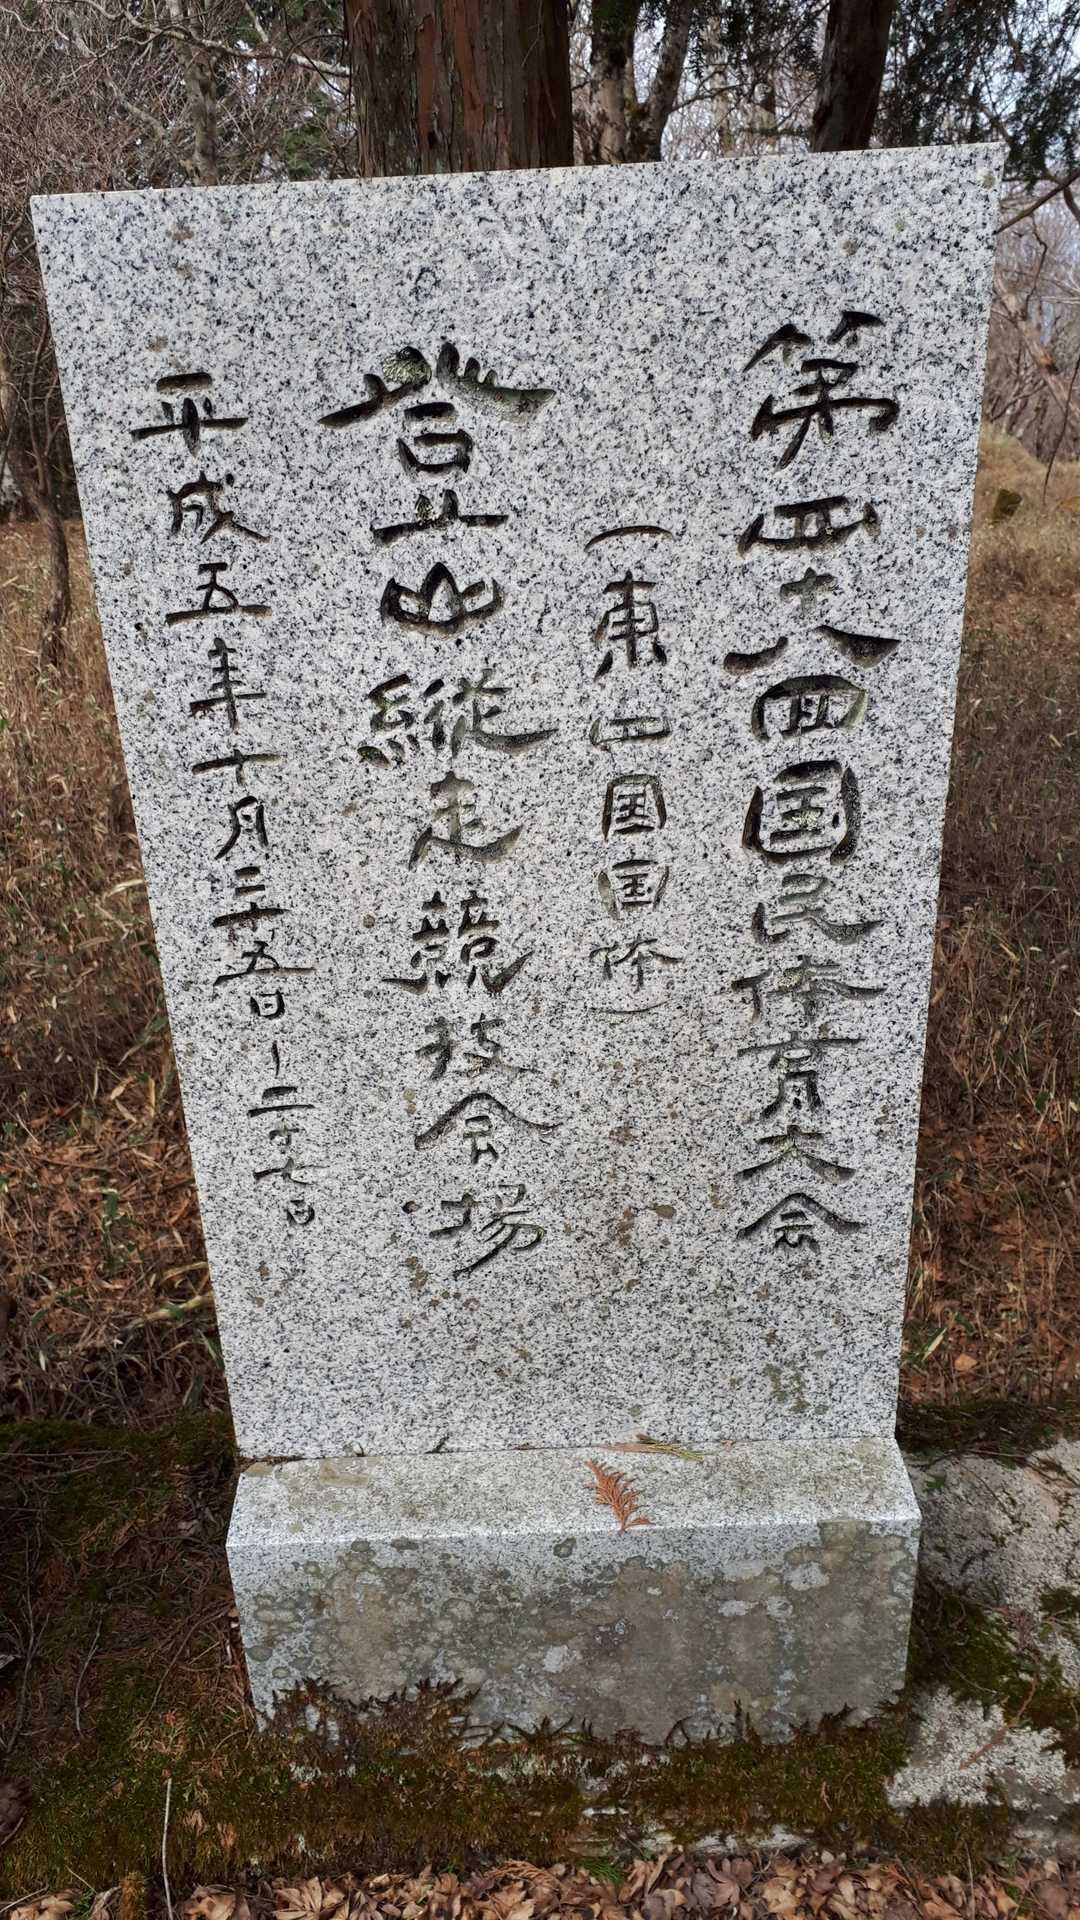 第四十八回国民体育大会
（東四国国体）
登山縦走競技会場
平成五年十月二十五日ー二十七日